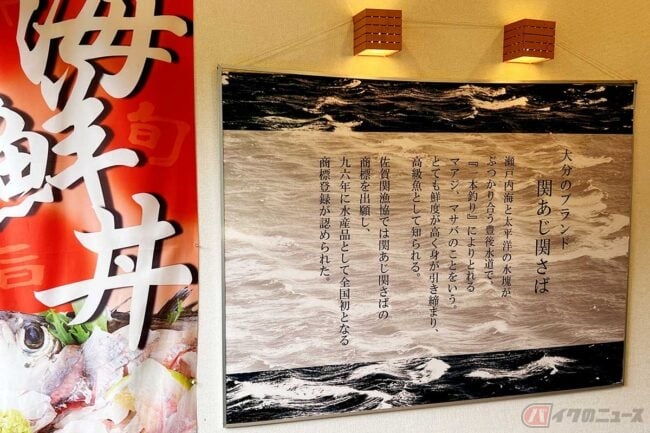 海鮮丼
旬
鮮
旨
大分のブランド
関あじ関さば
瀬戸内海と太平洋の水塊が
ぶつかり合う豊後水道で、
『一本釣り』によりとれる
マアジ、マサバのことをいう。
とても鮮度が高く身が引き締まり、
高級魚として知られる。
佐賀関漁協では関あじ関さばの
商標を出願し、
九六年に水産品として全国初となる
商標登録が認められた。
バイクのニュース